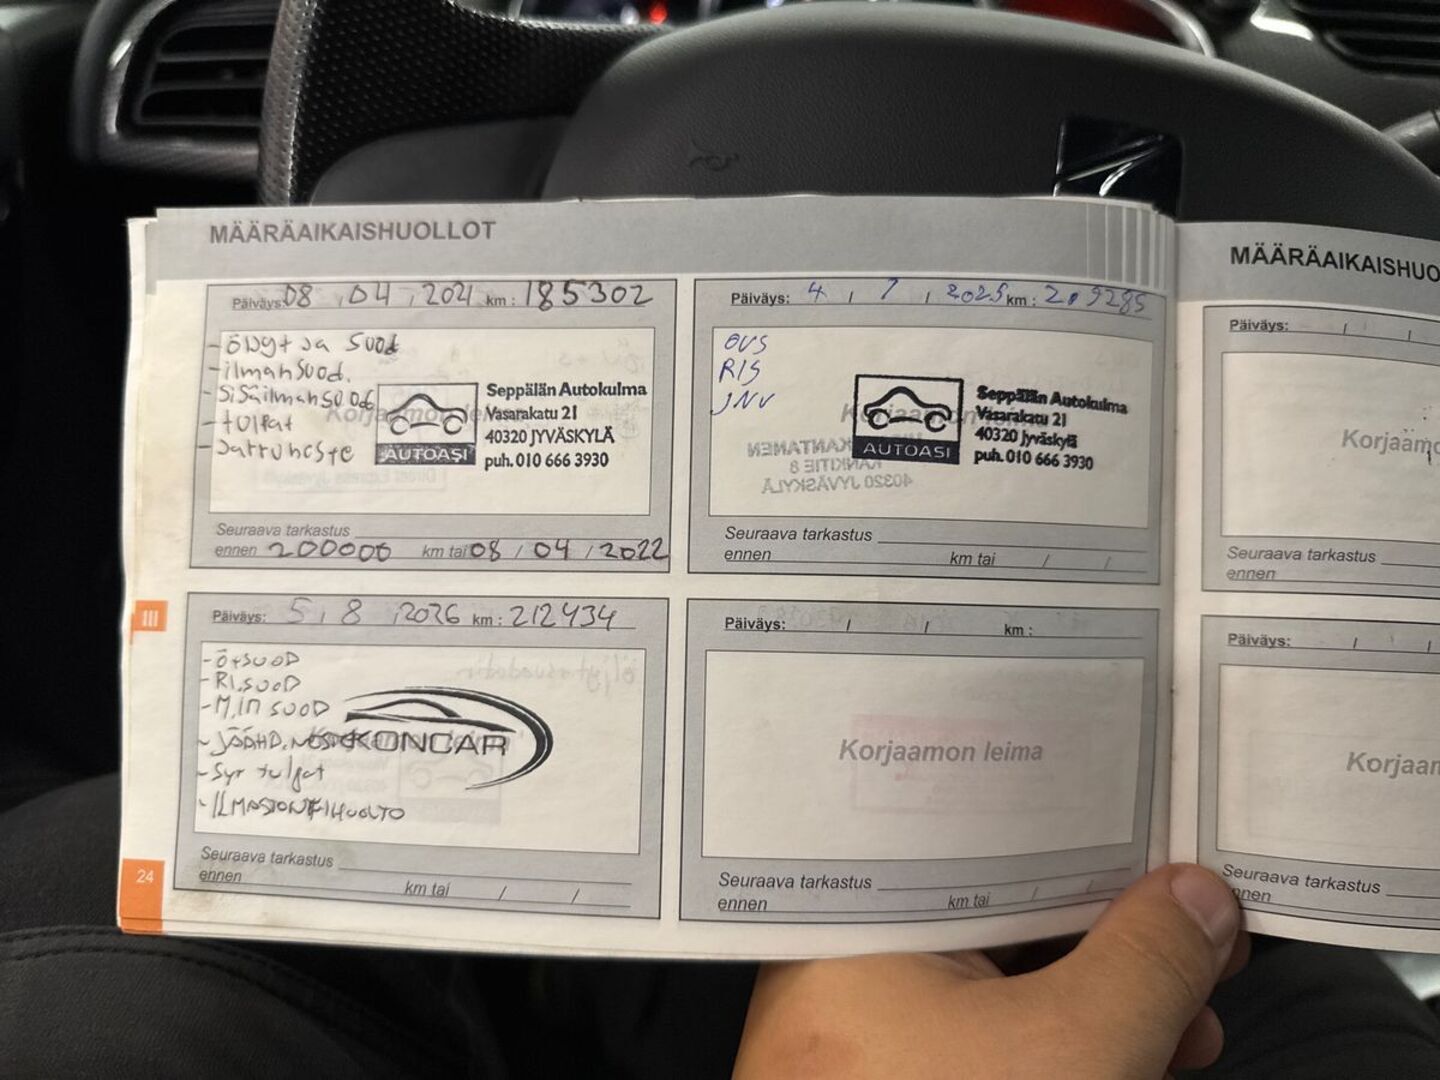 MÄÄRÄAIKAISHUOLLOT
Päiväys: 08 , 04 , 2021 km : 185302
- öljyt ja suod
- ilmansuod.
- sisäilmansuod
- tulpat
- jarruneste
Korjaamon leima
AUTOASI
Seppälän Autokulma
Vasarakatu 21
40320 JYVÄSKYLÄ
puh. 010 666 3930
Seuraava tarkastus
ennen 200000 km tai 08 / 04 / 2022
Päiväys: 4 / 7 / 2025 km : 209285
ÖVS
RIS
JNV
AUTOASI
Seppälän Autokulma
Vasarakatu 21
40320 Jyväskylä
puh. 010 666 3930
Seuraava tarkastus
ennen km tai / /
III
Päiväys: 5 , 8 , 2026 km : 212434
- Ö+SUOD
- RI.SUOD
- M.IN SUOD
- JÄÄHD.NESTE
- Syt tulpat
- ILMASTOINTIHUOLTO
KONCAR
Seuraava tarkastus
ennen km tai / /
Päiväys: / / km :
Korjaamon leima
Seuraava tarkastus
ennen km tai / /
24
MÄÄRÄAIKAISHUO
Päiväys: / /
Korjaamo
Seuraava tarkastus
ennen
Päiväys: / /
Korjaam
Seuraava tarkastus
ennen